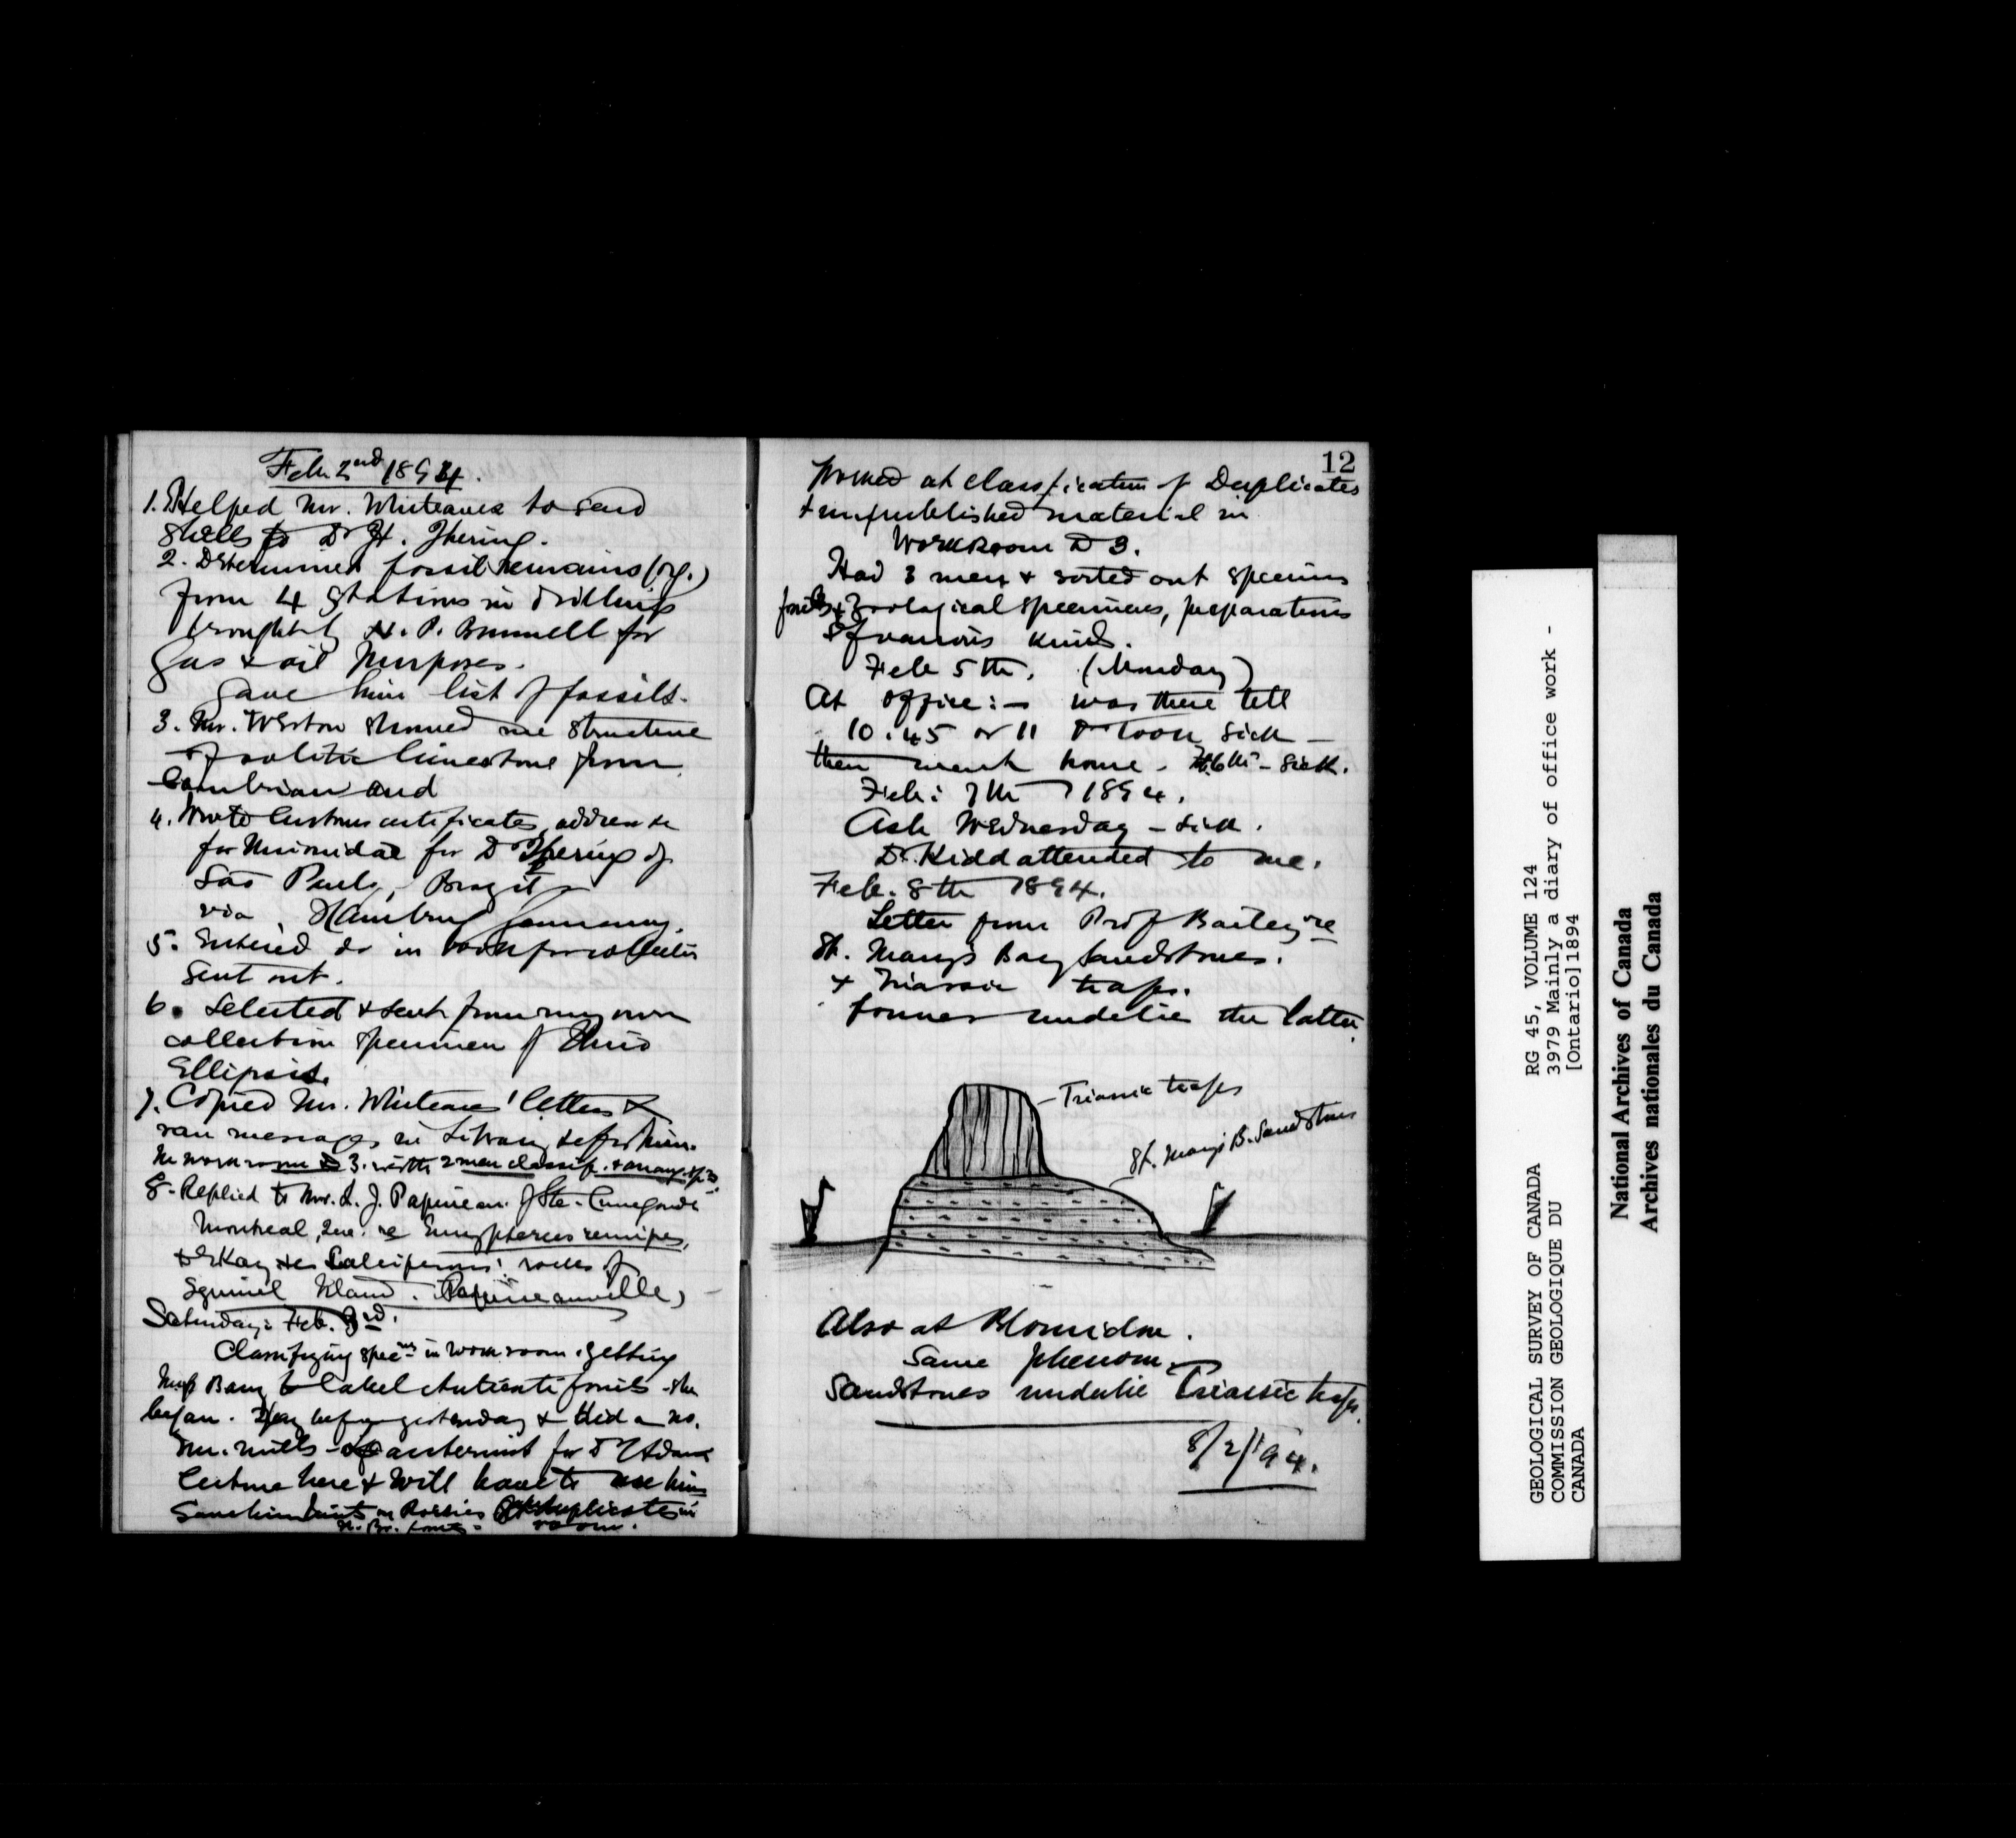 Feb. 2nd 1894.
1. Helped Mr. Whiteaves to send
shells to Dr H. Jhering.
2. Determined fossil remains (org.)
from 4 stations in drillings
brought by H. P. Brumell for
Gas & oil purposes.
Gave him list of fossils.
3. Mr. Weston showed me structure
of oolitic limestone from
Cambrian and
4. Wrote Customs certificates, address &c
for Unionidae for Dr Jhering of
São Paulo, Brazil,
via Hamburg Germany.
5. Entered do in book for collections
sent out.
6. Selected & sent from my own
collection specimen of Unio
Ellipsis.
7. Copied Mr. Whiteaves' letters &
ran messages in Library &c for him.
In workroom D 3. with 2 men classif. & arrang. sp.
8. Replied to Mr. L. J. Papineau of Ste. Cunegonde
Montreal, Que. re Eurypterus remipes,
DeKay & Calciferous rocks of
Squirrel Island. (Papineauville)
Saturday: Feb. 3rd.
Classifying specns in workroom. Getting
Miss Barry to label Anticosti fossils - she
began. Day before yesterday & did a no.
Mr. Mills - for Dr Adams
lecture here & will have to use him
Gave him hints on Duplicates in
room.
12
Worked at classification of Duplicates
& unpublished material in
Workroom D 3.
Had 3 men & sorted out specimens
fossils & Zoological specimens, preparations
of various kinds.
Feb 5th. (Monday)
At office: - was there till
10.45 or 11 & took sick -
then went home. 6th - sick.
Feb: 7th 1894.
Ash Wednesday - sick.
Dr. Kidd attended to me.
Feb. 8th 1894.
Letter from Prof Bailey re
St. Mary's Bay Sandstones.
& Triassic traps.
former underlie the latter.
Triassic traps
St. Mary's B. Sandstones
Also at Blomidon.
Same phenom.
Sandstones underlie Triassic traps.
8/2/94.
GEOLOGICAL SURVEY OF CANADA
COMMISSION GEOLOGIQUE DU
CANADA
RG 45, VOLUME 124
3979 Mainly a diary of office work -
[Ontario]1894
National Archives of Canada
Archives nationales du Canada